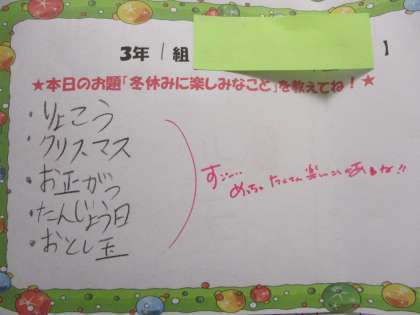 3年 1組 】
★本日のお題「冬休みに楽しみなこと」を教えてね！★
・りょこう
・クリスマス
・お正がつ
・たんじょう日
・おとし玉
すご…
めっちゃ たくさん 楽しいこと あるね!!